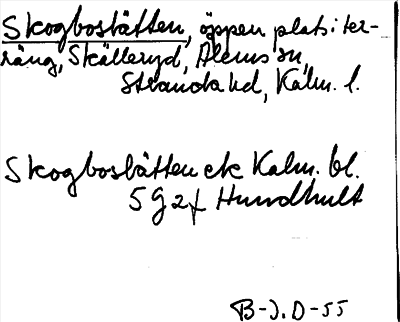 Skogbostätten, öppen plats i ter-
räng, Skälleryd, Ålems sn,
Stranda hd, Kalm. l.
Skogbostätten ek Kalm. bl.
5 G 2 f Hundhult
B-J. D-55